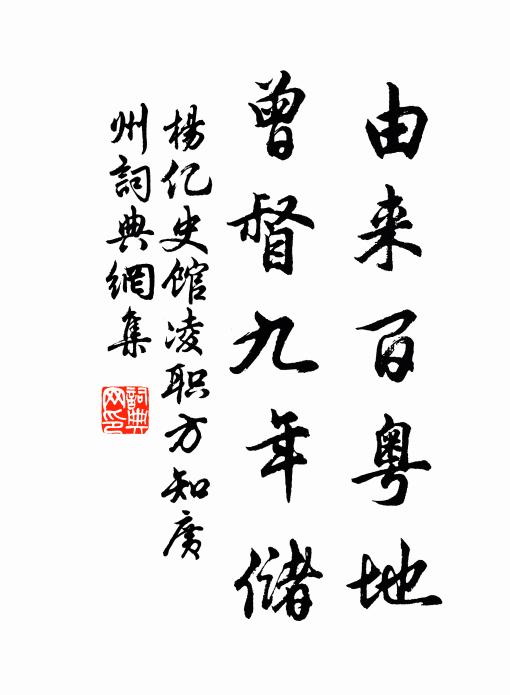 由来百粤地
曾督九年储
杨亿史馆凌职方知廣
州詞典網集
詞典
网印